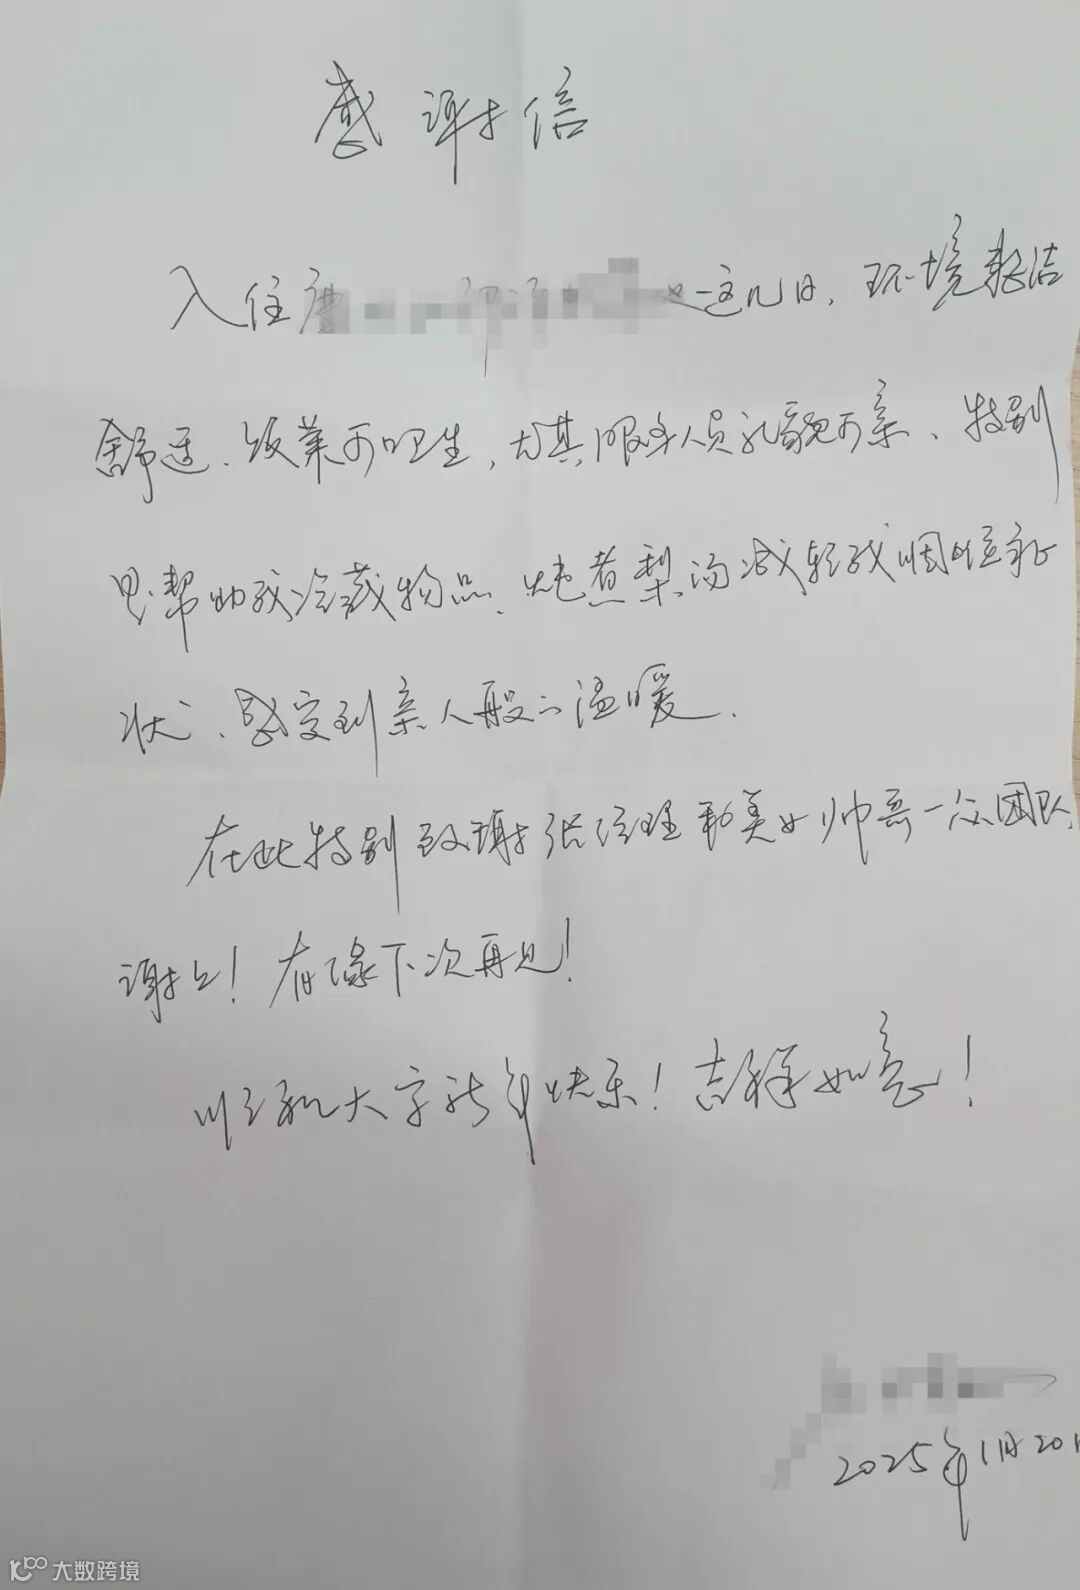 感谢信
入住 这几日，环境整洁
舒适、饭菜可口卫生，尤其服务人员礼貌可亲、特别
是帮助我冷藏物品、炖煮梨汤减轻我咽喉症
状、感受到亲人般的温暖.
在此特别致谢张经理和美女帅哥一众团队,
谢谢！有缘下次再见！
顺祝大家新年快乐！吉祥如意！
2025年1月20
大数跨境